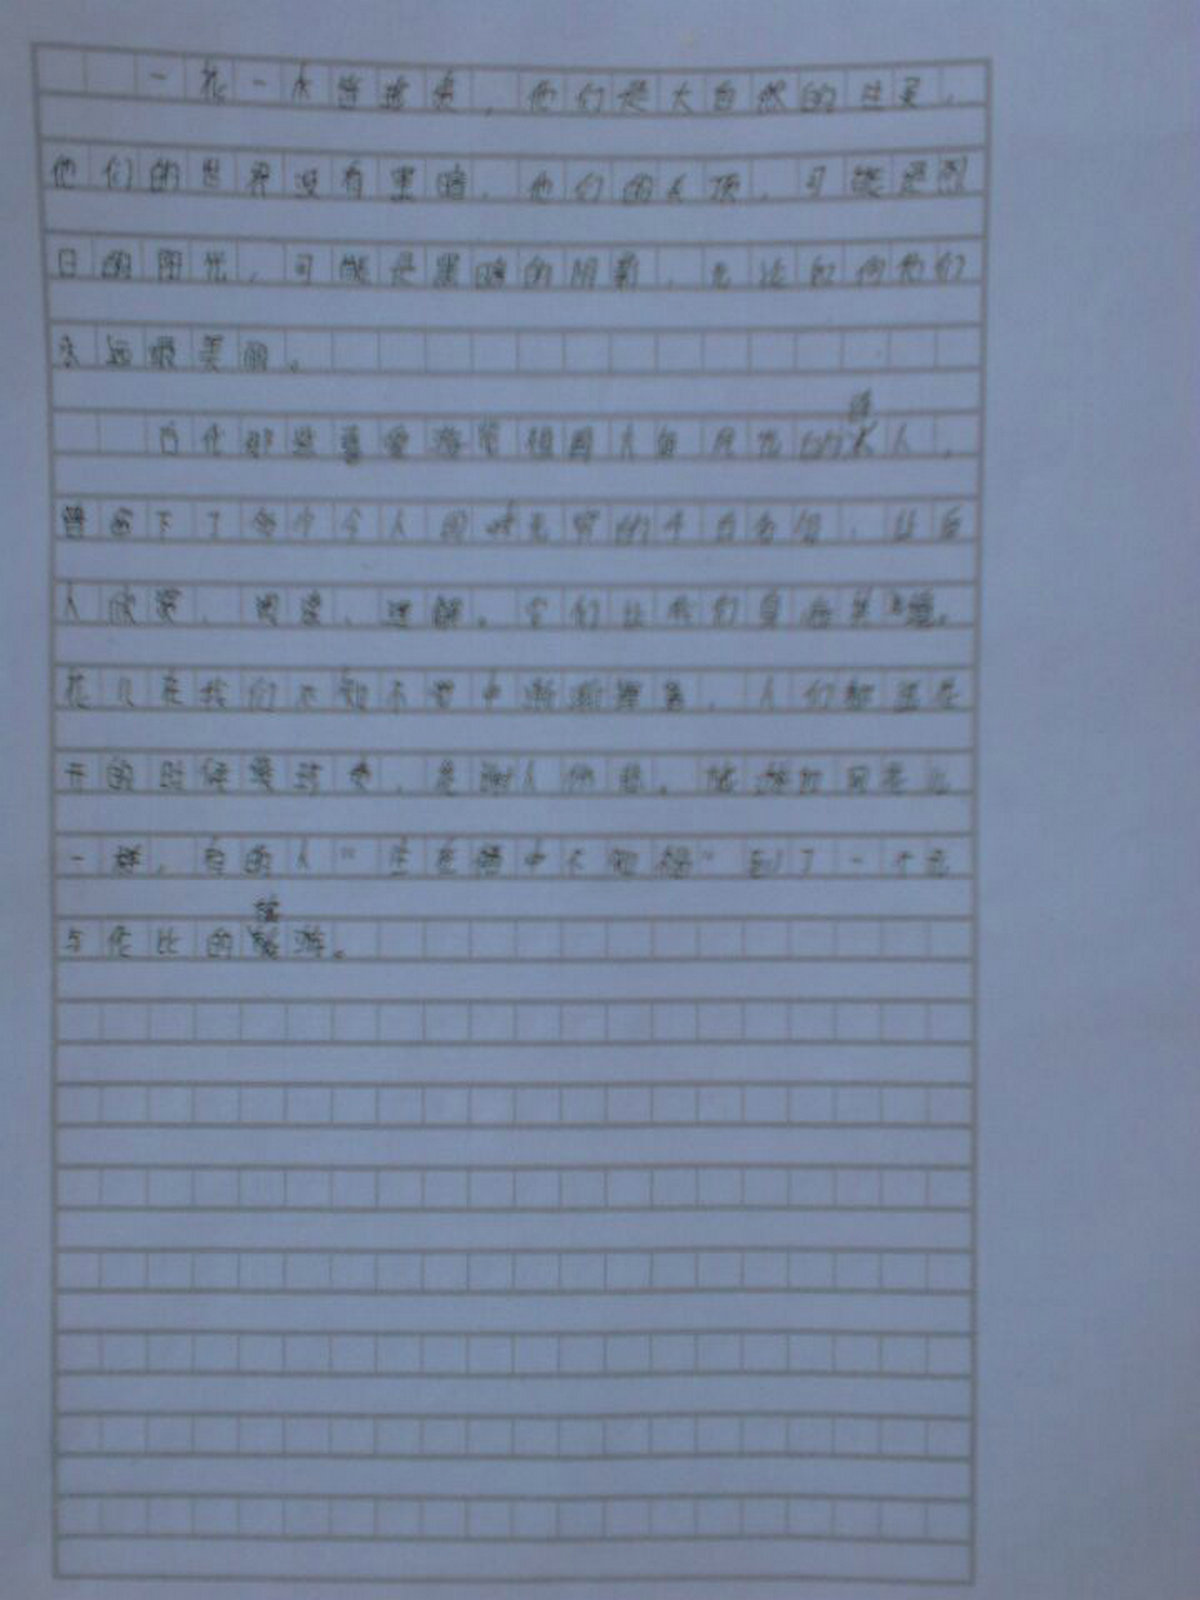 一花一木皆接来，他们是大自然的生灵，
他们的世界没有黑暗，他们的头顶，可能是烈
日的阳光，可能是黑暗的阴影，无论如何他们
永远最美丽。
古代那些喜爱游览祖国大好风光的诗人，
曾留下了令人回味无穷的千古名句，让后
人欣赏、阅读、理解。它们让我们身临其境。
花儿在我们不知不觉中渐渐，人们都
开的时候，旅游如同花儿
一样，有的人“生在福中不知福”到了一个无
与伦比的旅游。